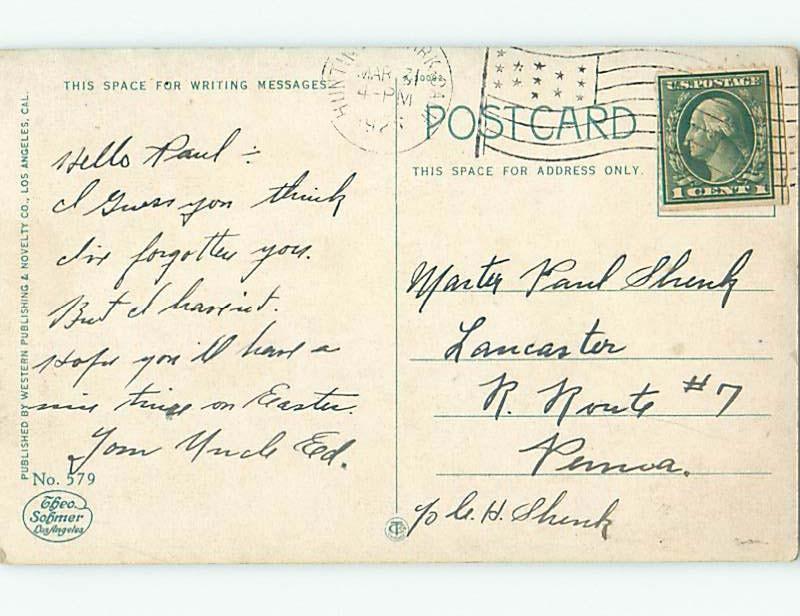 THIS SPACE FOR WRITING MESSAGES
Hello Paul :
I Guess you think
I've forgotten you.
But I haven't.
Hope you'll have a
nice time on Easter.
Your Uncle Ed.
PUBLISHED BY WESTERN PUBLISHING & NOVELTY CO., LOS ANGELES, CAL.
No. 579
Theo. Sohmer Los Angeles
MAR 31
4-PM
POST CARD
THIS SPACE FOR ADDRESS ONLY.
U.S. POSTAGE
1 CENT 1
Master Paul Shenk
Lancaster
R. Route #7
Penna.
c/o C. H. Shenk